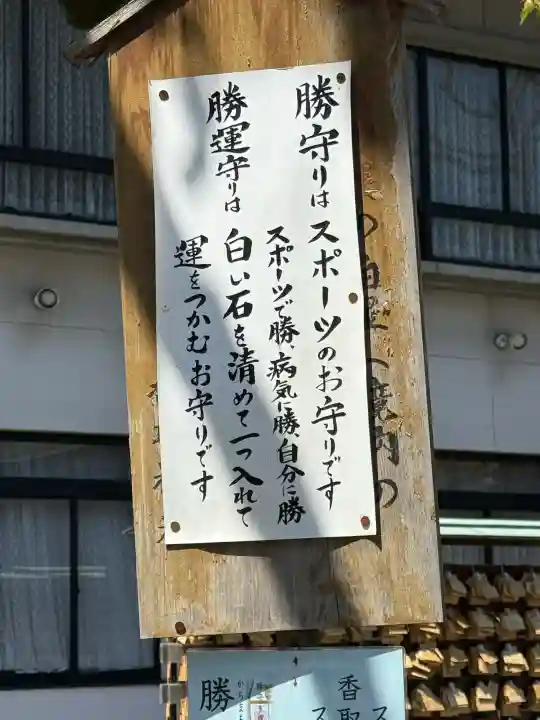 勝守りはスポーツのお守りです
スポーツで勝、病気に勝、自分に勝
勝運守りは
白い石を清めて一つ入れて
運をつかむお守りです
境内の
勝
香取
ス
ス